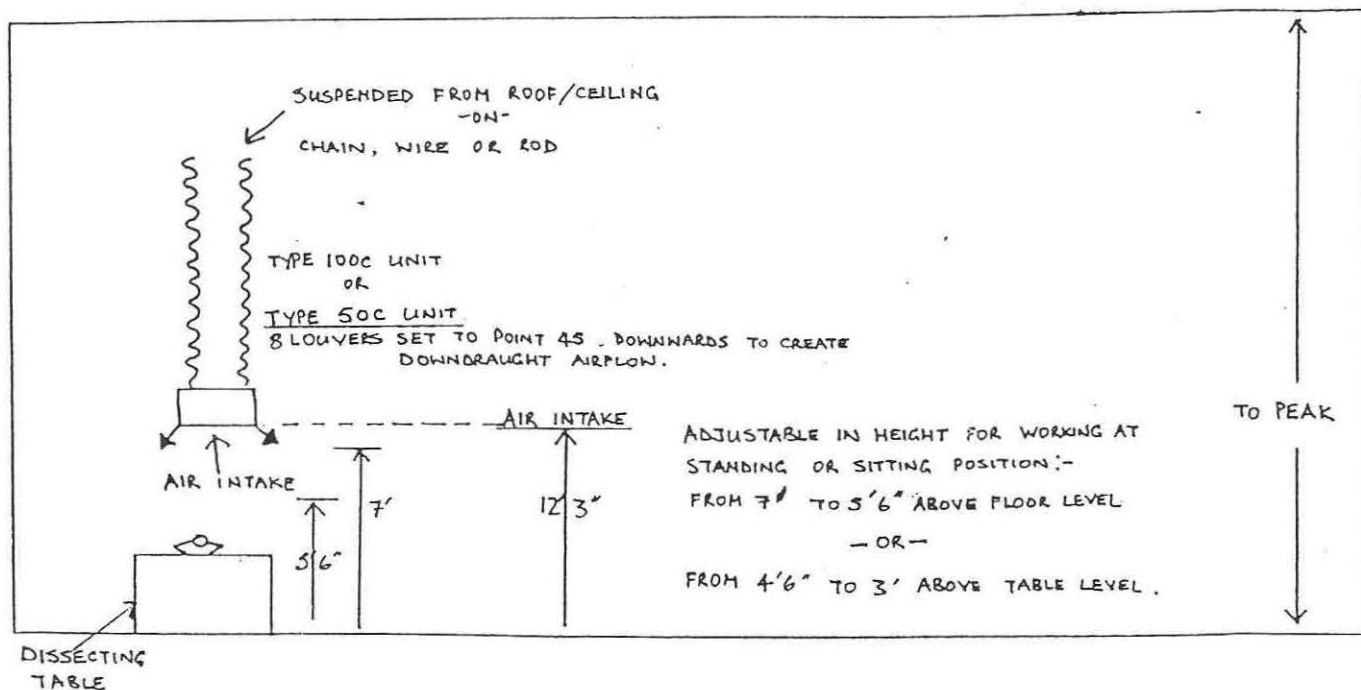 SUSPENDED FROM ROOF/CEILING
-ON-
CHAIN, WIRE OR ROD
TYPE 100C UNIT
OR
TYPE 50C UNIT
8 LOUVERS SET TO POINT 45. DOWNWARDS TO CREATE
DOWNDRAUGHT AIRFLOW.
AIR INTAKE
AIR INTAKE
5'6"
7'
12' 3"
ADJUSTABLE IN HEIGHT FOR WORKING AT
STANDING OR SITTING POSITION:-
FROM 7' TO 5'6" ABOVE FLOOR LEVEL
-OR-
FROM 4'6" TO 3' ABOVE TABLE LEVEL.
TO PEAK
DISSECTING
TABLE